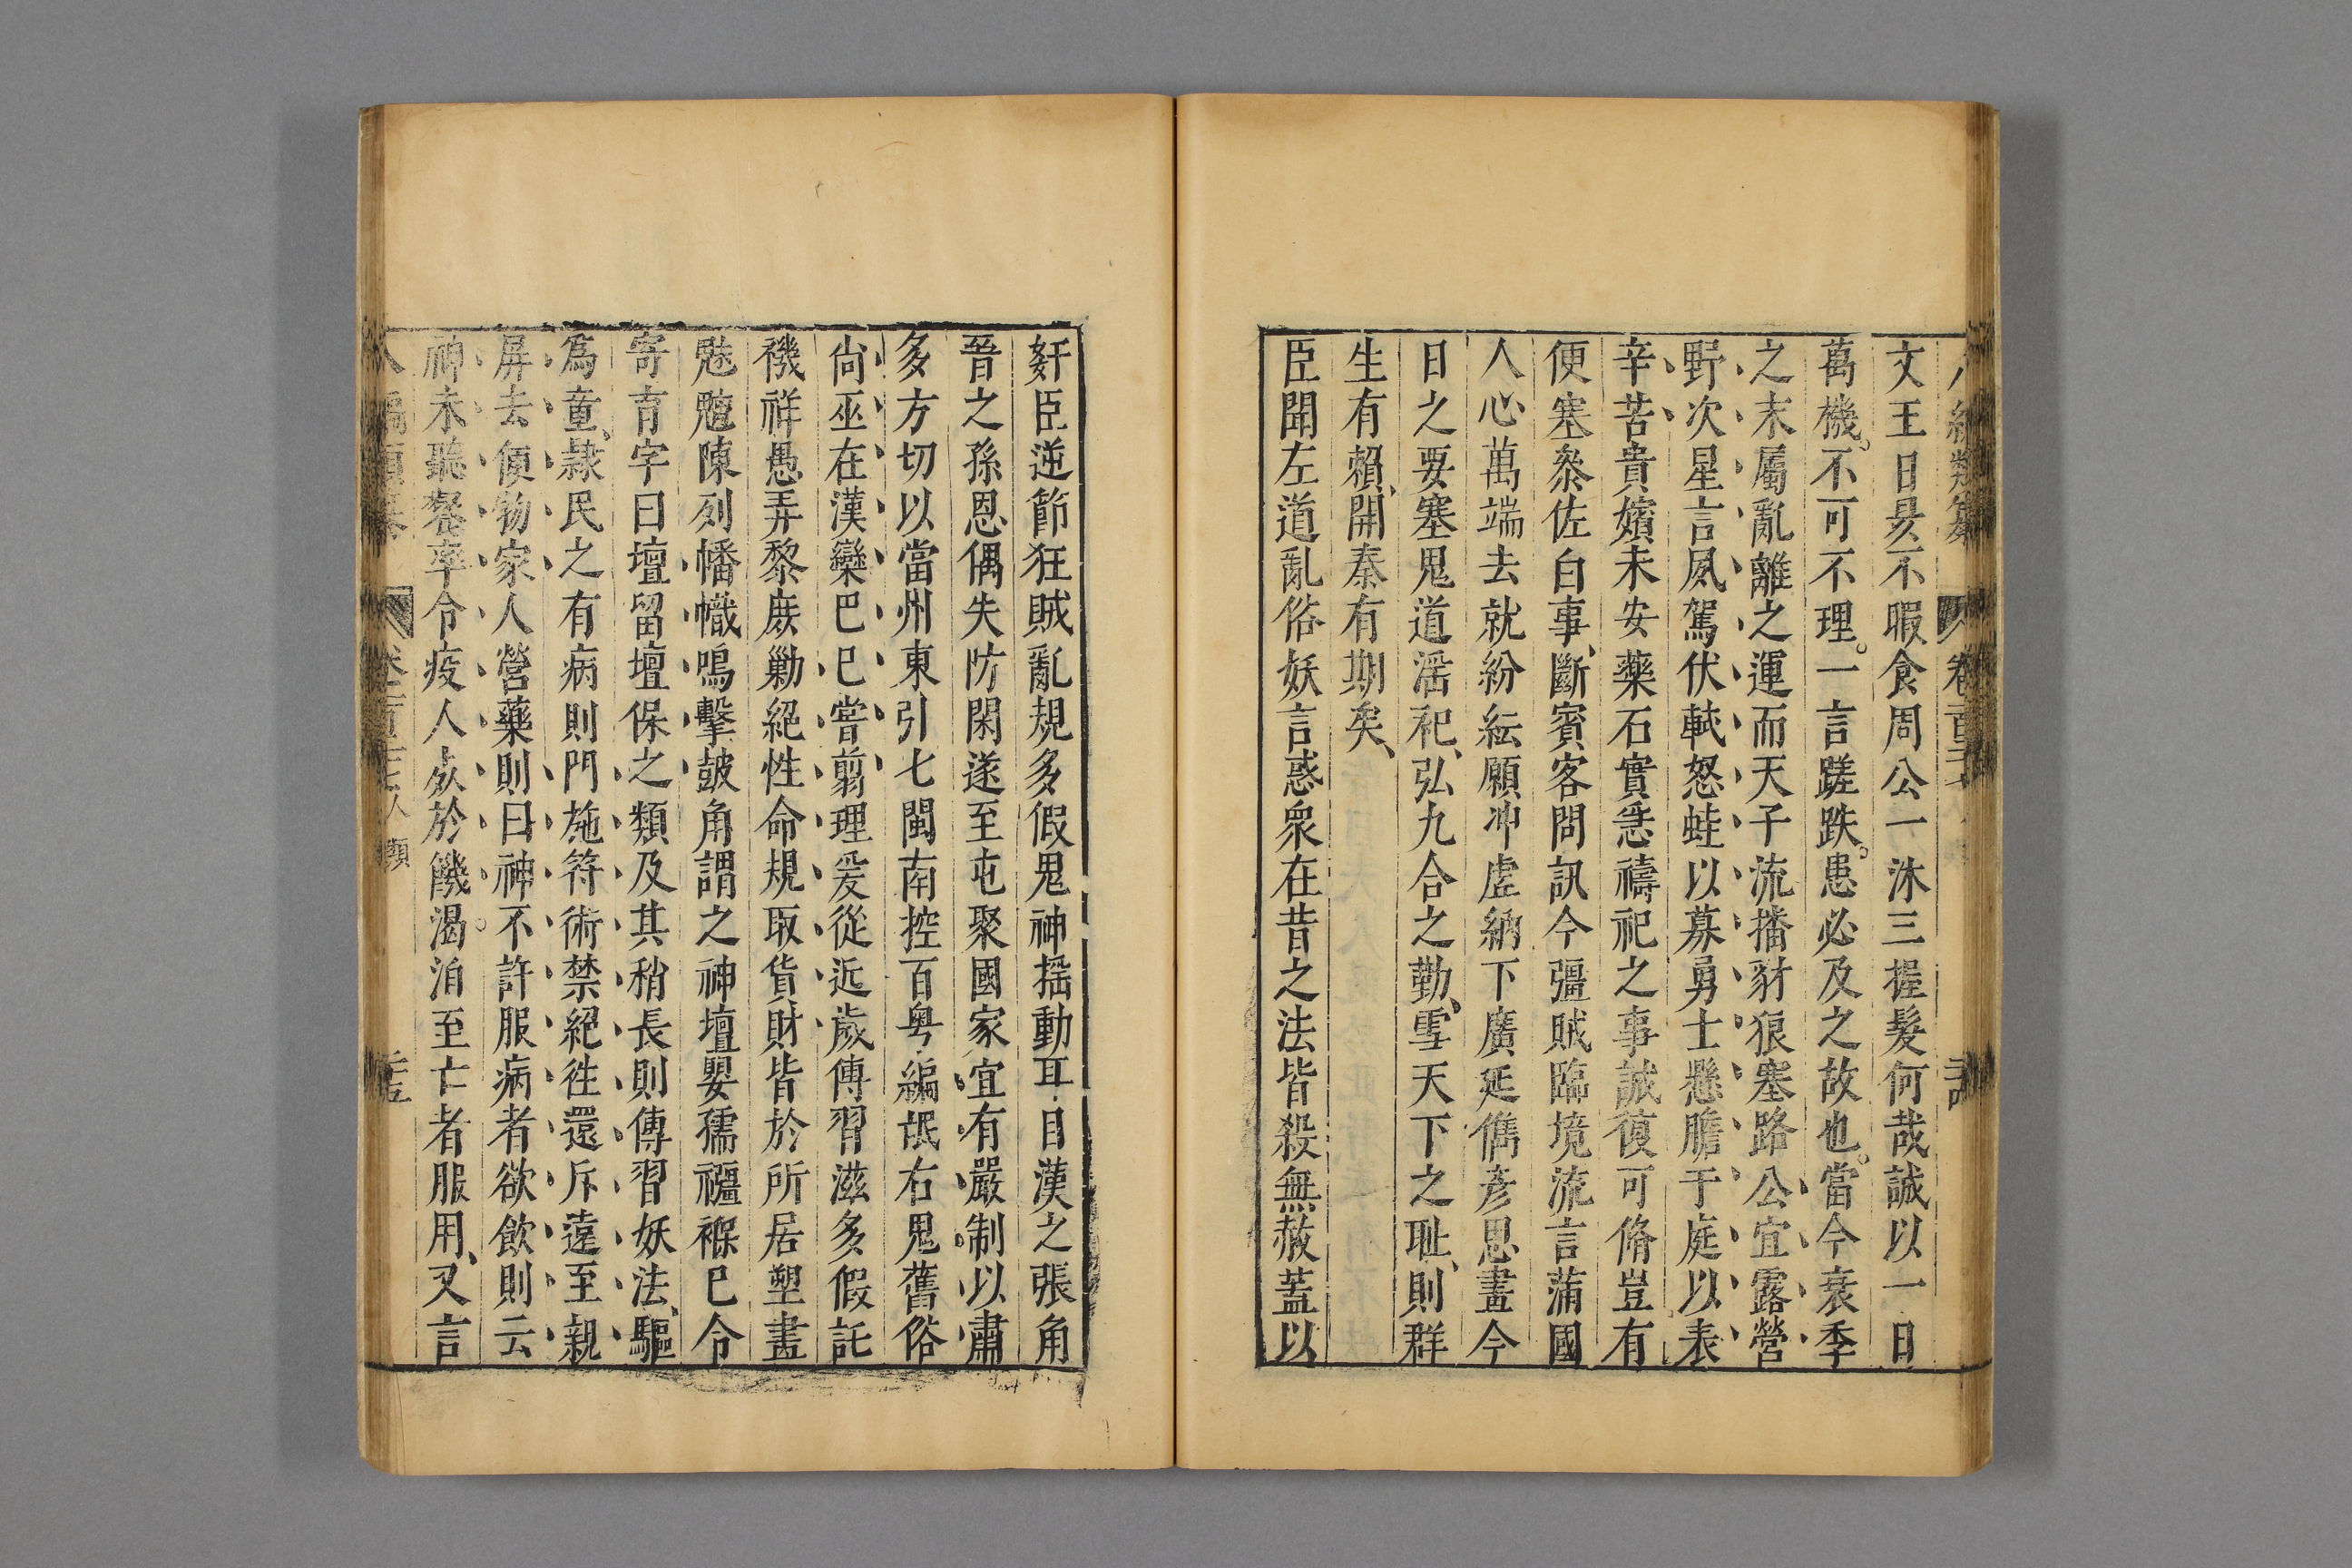 文王日昃不暇食周公一沐三握髮何哉誠以一日
萬機不可不理一言蹉跌患必及之故也當今衰季
之末屬亂離之運而天子流播豺狼塞路公宜露營
野次星言夙駕伏軾怒蛙以募勇士懸膽于庭以表
辛苦貴嬪未安藥石實急禱祀之事誠復可脩豈有
便塞叅佐白事斷賓客問訊今彊賊臨境流言蒲國
人心萬端去就紛紜願沖虛納下廣延儁彥思畫今
日之要塞鬼道滛祀弘九合之勤雪天下之耻則群
生有賴開泰有期矣
臣聞左道亂俗妖言惑衆在昔之法皆殺無赦蓋以
姧臣逆節狂賊亂規多假鬼神揺動耳目漢之張角
晉之孫恩偶失防閑遂至屯聚國家宜有嚴制以肅
多方切以當州東引七閩南控百粤編氓右鬼舊俗
尚巫在漢欒巴已嘗翦理爰從近歲傳習滋多假託
禨祥愚弄黎庶勦絕性命規取貨財皆於所居塑畫
魅魈陳列幡幟鳴擊皷角謂之神壇嬰孺襁褓已令
寄育字曰壇留壇保之類及其稍長則傳習妖法驅
爲童隷民之有病則門施符術禁絕徃還斥遠至親
屏去便物家人營藥則曰神不許服病者欲飲則云
神未聽飱率令疫人死於饑渴洎至亡者服用又言